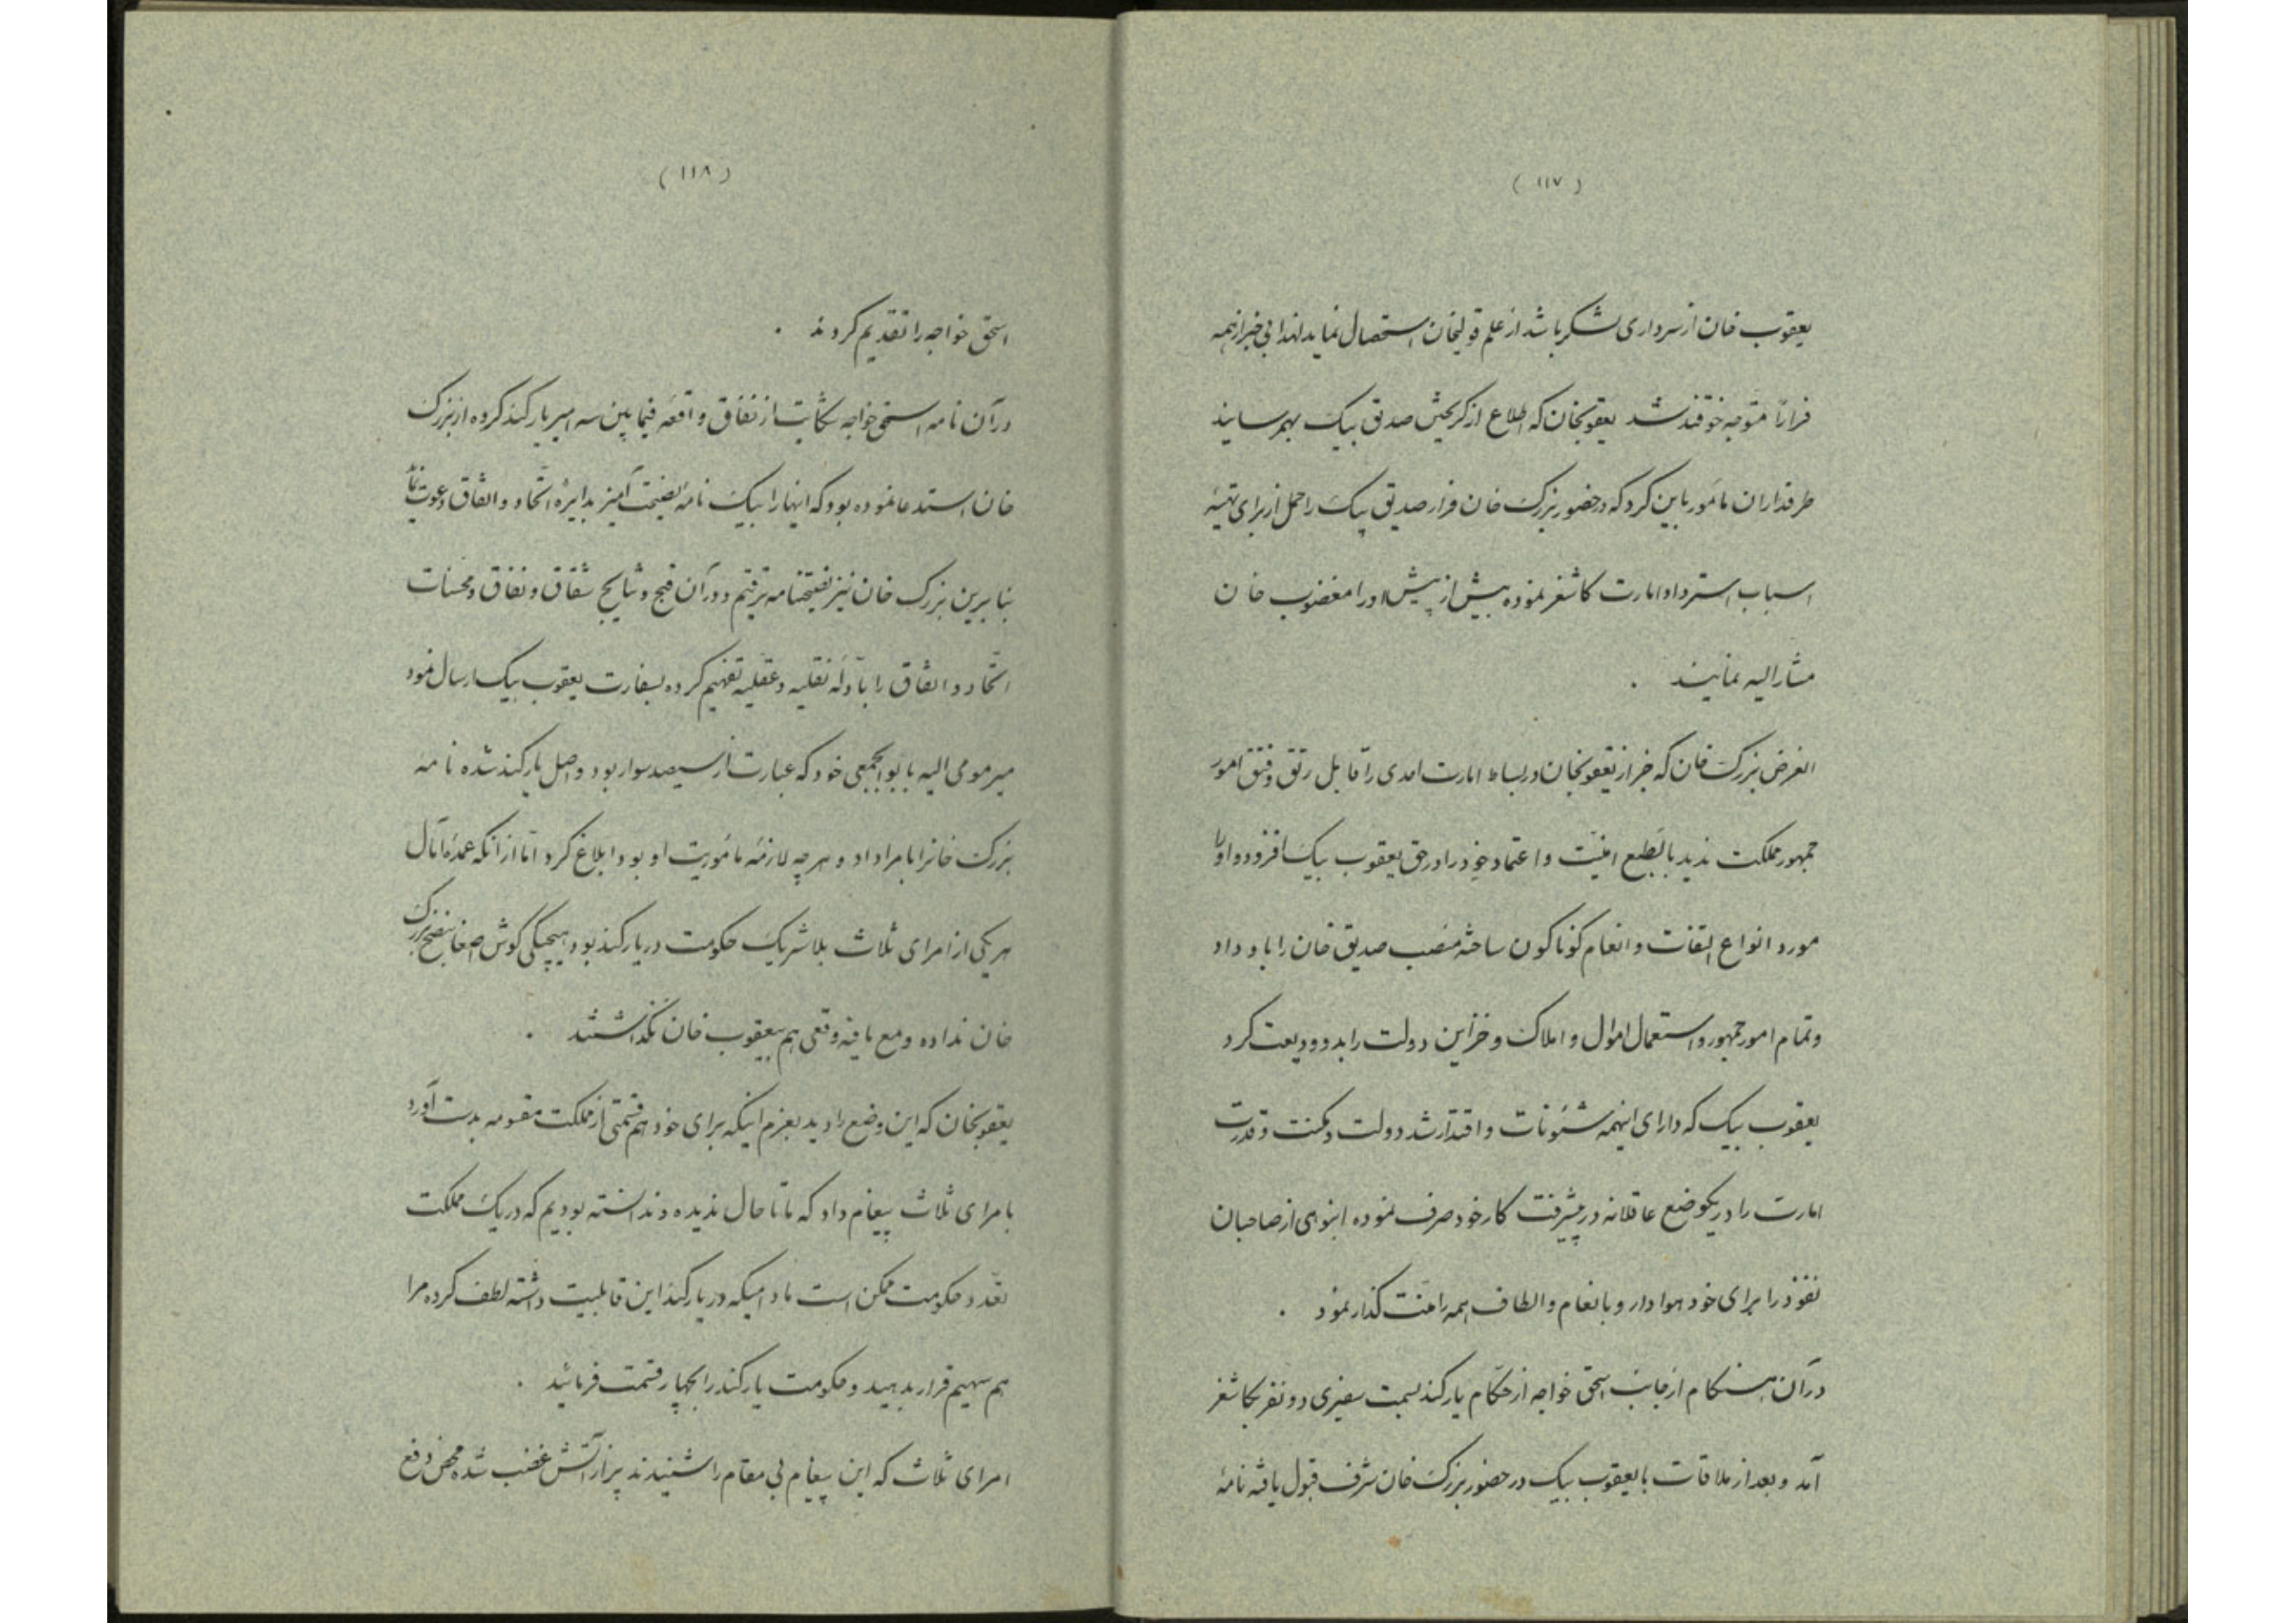 (۱۱۷)
یعقوب خان از سرداری لشکر باشد از علم قولیخان استحصال نماید لهذا بی خبر از همه
فراراً متوجه خوقند شد یعقوبخان که اطلاع از گریختن صدیق بیک بهمرسانید
طرفداران مأمور باین کرد که در حضور بزرک خان فرار صدیق بیک را حمل از برای تهیهٔ
اسباب استرداد امارت کاشغر نموده بیش از پیش اورا مغضوب خان
مشارالیه نمایند .
الغرض بزرک خان که خبر از یعقوبخان در بساط امارت احدی را قابل رتق و فتق امور
جمهور مملکت ندید بالطبع امنیّت و اعتماد خود را در حق یعقوب بیک افزوده اورا
مورد انواع التفات و انعام کوناکون ساخته منصب صدیق خان را باو داد
و تمام امور جمهور و استعمال اموال و املاک و خزاین دولت را بدو ودیعت کرد
یعقوب بیک که دارای اینهمه شئونات و اقتدار شد دولت و مکنت و قدرت
امارت را در یکوضع عاقلانه در پیشرفت کار خود صرف نموده انبوهی از صاحبان
نفوذ را برای خود هوادار و بانعام و الطاف همه را منّت کذار نمود .
در آن هنکام از جانب اسحق خواجه از حکّام یارکند بسمت سفیری دو نفر بکاشغر
آمد و بعد از ملاقات با یعقوب بیک در حضور بزرک خان شرف قبول یافته نامهٔ
(۱۱۸)
اسحق خواجه را تقدیم کردند .
در آن نامه اسحق خواجه شکایت از نفاق واقعه فیمابین سه امیر یارکند کرده از بزرک
خان استدعا نموده بود که اینها را بیک نامهٔ نصیحت آمیز بدایرهٔ اتّحاد و اتفاق دعوت نماید
بنابرین بزرک خان نیز نصیحتنامه ترقیم و در آن قبح و نتایج شقاق و نفاق و محسنات
اتّحاد و اتفاق را بادلّه نقلیه و عقلیه تفهیم کرده بسفارت یعقوب بیک ارسال نمود
میر مومی الیه با توابجمعی خود که عبارت از سیصد سوار بود واصل یارکند شده نامه
بزرک خانرا بامرا داد و هر چه لازمهٔ مأموریت او بود ابلاغ کرد امّا از آنکه عمدهٔ آمال
هر یکی از امرای ثلاث بلاشریک حکومت در یارکند بود هیچیکی کوش اصغا بنصح بزرک
خان نداده و مع مافیه وقعی هم بیعقوب خان نکذاشتند .
یعقوبخان که این وضع را دید بعزم اینکه برای خود هم قسمتی از مملکت مقسومه بدست آورد
بامرای ثلاث پیغام داد که ما تا حال ندیده و ندانسته بودیم که در یک مملکت
تعدّد حکومت ممکن است مادامیکه در یارکند این قابلیت داشته لطف کرده مرا
هم سهیم قرار بدهید و حکومت یارکند را بچهار قسمت فرمائید .
امرای ثلاث که این پیغام بی مقام را شنیدند پر از آتش غضب شده محض دفع